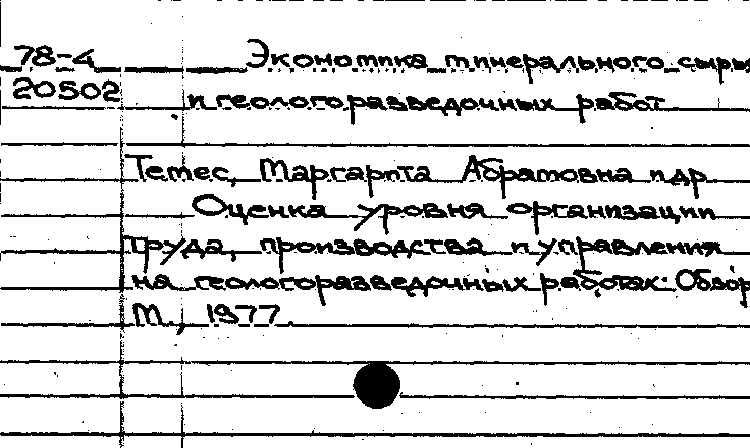 78-4 Экономика минерального сырья
20502 и геологоразведочных работ
Темес, Маргарита Абрамовна и др.
Оценка уровня организации
труда, производства и управления
на геологоразведочных работах: Обзор
М., 1977.